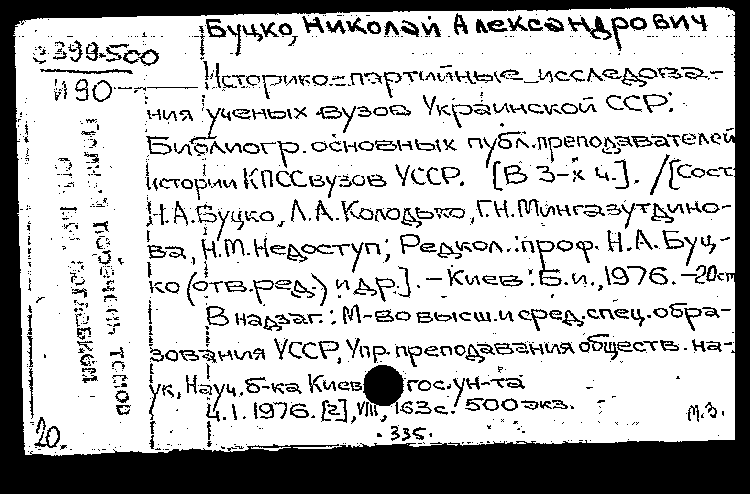 Буцко, Николай Александрович
е 399.500
И 90
Историко-партийные исследова-
ния ученых вузов Украинской ССР:
Библиогр. основных публ. преподавателей
истории КПСС вузов УССР. [В 3-х ч.]. / [Сост.
Н.А. Буцко, Л.А. Колодько, Г.Н. Мингазутдино-
ва, Н.М. Недоступ; Редкол.: проф. Н.А. Буц-
ко (отв. ред.) и др.]. – Киев: Б.и., 1976. – 20см
В надзаг.: М-во высш. и сред. спец. обра-
зования УССР, Упр. преподавания обществ. на-
ук, Науч. б-ка Киев гос. ун-та
Ч.1. 1976. [2], VIII, 163с. 500 экз.
М.З.
20.
· 335 ·
Полный перечень томов
см. под заглавием